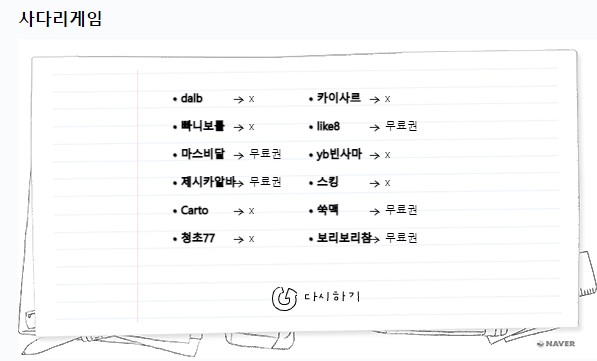 사다리게임
• dalb → x • 카이사르 → x
• 빠니보틀 → x • like8 → 무료권
• 마스비달 → 무료권 • yb빈사마 → x
• 제시카알바→ 무료권 • 스킹 → x
• Carto → x • 쑥맥 → 무료권
• 청초77 → x • 보리보리참→ 무료권
다시하기
NAVER